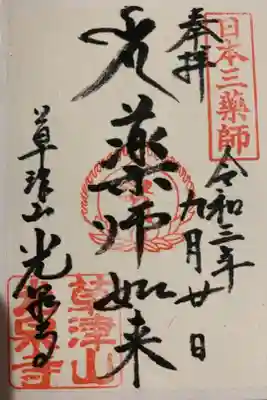 日本三薬師
奉拝
令和三年九月廿日
薬師如来
草津山光泉寺
草津山
光泉寺